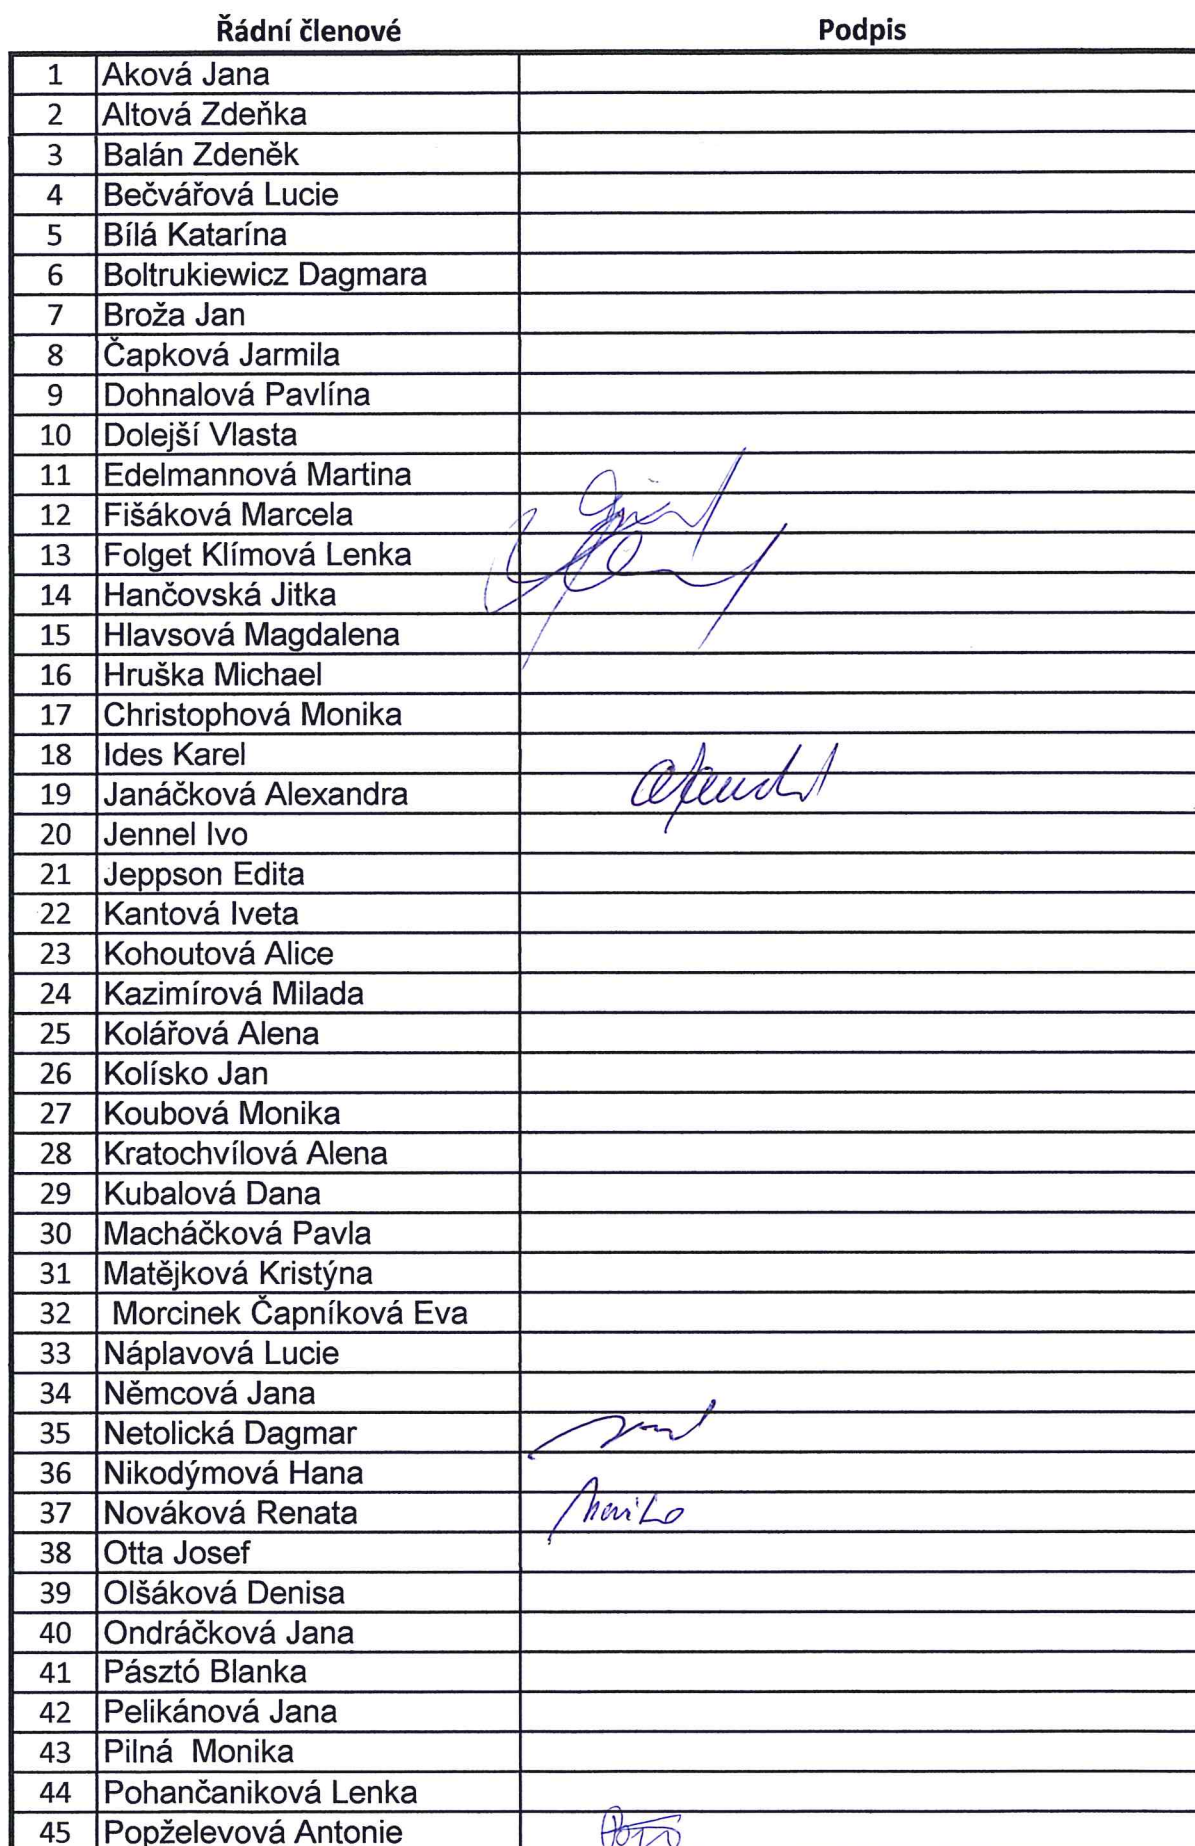 Řádní členové Podpis
1 Aková Jana
2 Altová Zdeňka
3 Balán Zdeněk
4 Bečvářová Lucie
5 Bílá Katarína
6 Boltrukiewicz Dagmara
7 Broža Jan
8 Čapková Jarmila
9 Dohnalová Pavlína
10 Dolejší Vlasta
11 Edelmannová Martina
12 Fišáková Marcela
13 Folget Klímová Lenka
14 Hančovská Jitka
15 Hlavsová Magdalena
16 Hruška Michael
17 Christophová Monika
18 Ides Karel
19 Janáčková Alexandra
20 Jennel Ivo
21 Jeppson Edita
22 Kantová Iveta
23 Kohoutová Alice
24 Kazimírová Milada
25 Kolářová Alena
26 Kolísko Jan
27 Koubová Monika
28 Kratochvílová Alena
29 Kubalová Dana
30 Macháčková Pavla
31 Matějková Kristýna
32 Morcinek Čapníková Eva
33 Náplavová Lucie
34 Němcová Jana
35 Netolická Dagmar
36 Nikodýmová Hana
37 Nováková Renata
38 Otta Josef
39 Olšáková Denisa
40 Ondráčková Jana
41 Pásztó Blanka
42 Pelikánová Jana
43 Pilná Monika
44 Pohančaniková Lenka
45 Popželevová Antonie